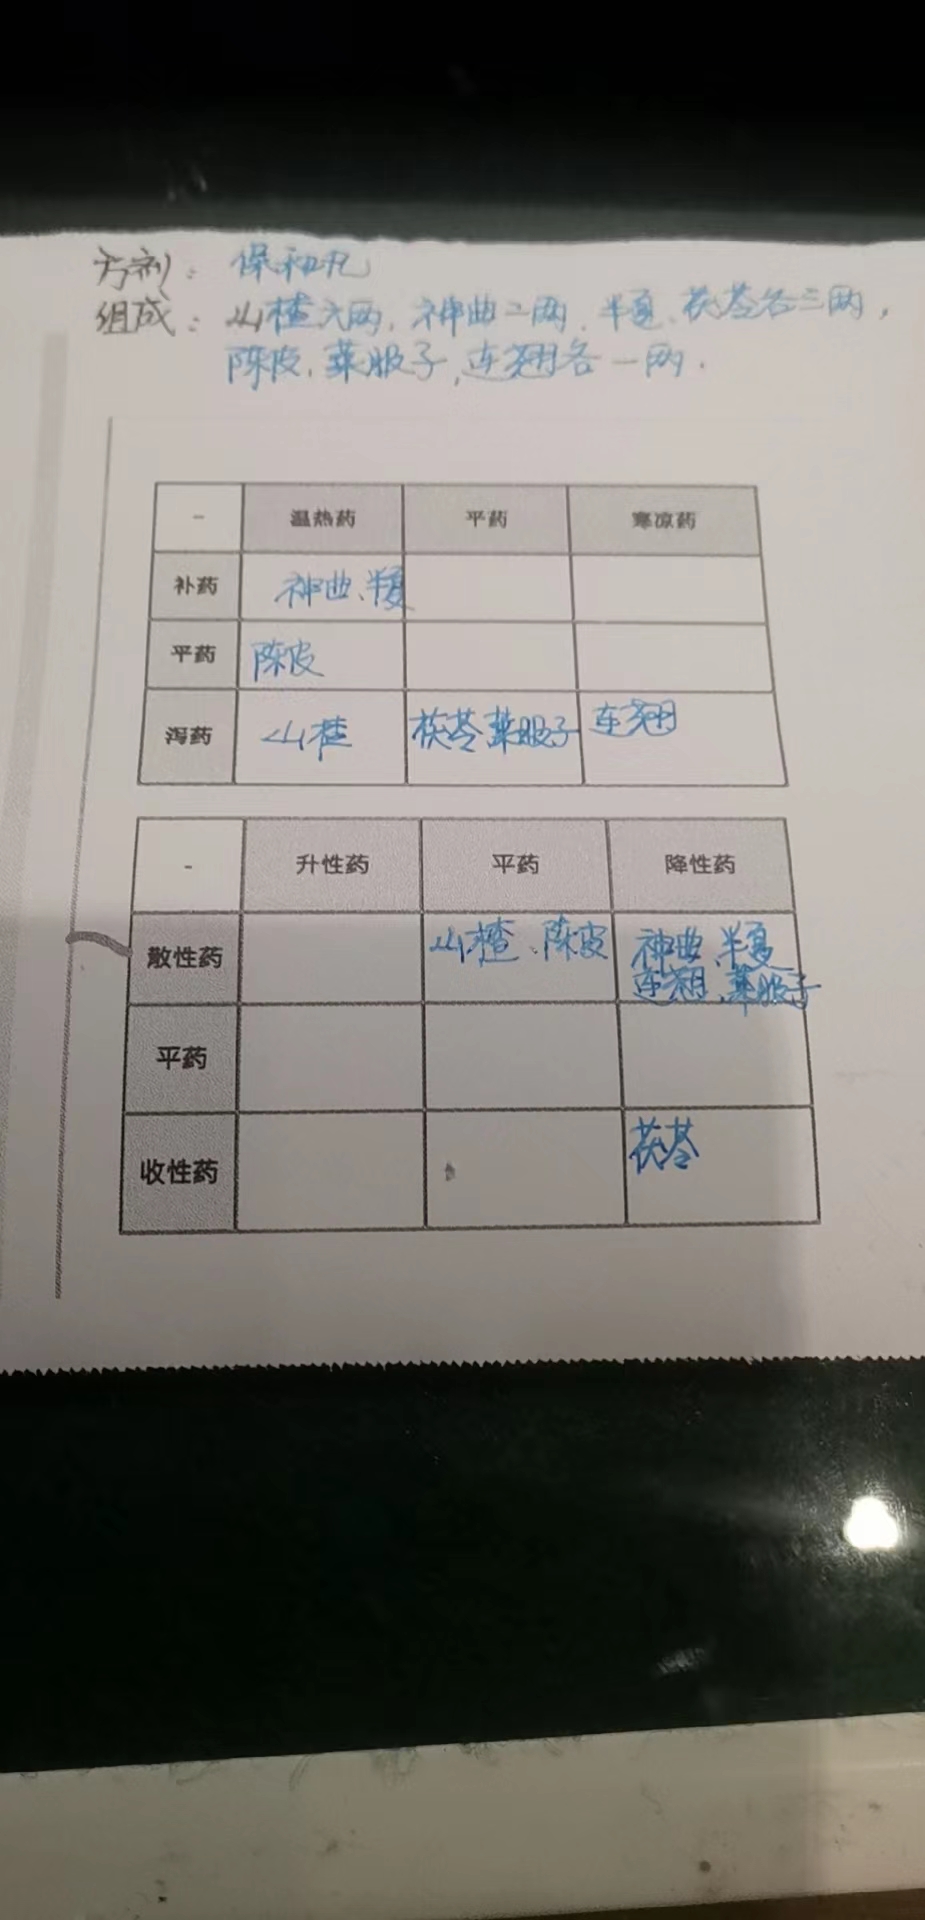 方剂：保和丸
组成：山楂六两，神曲二两，半夏、茯苓各三两，
陈皮、莱服子，连翘各一两．
- 温热药 平药 寒凉药
补药 神曲、半夏
平药 陈皮
泻药 山楂 茯苓莱服子 连翘
- 升性药 平药 降性药
散性药 山楂、陈皮 神曲、半夏
连翘、莱服子
平药
收性药 茯苓